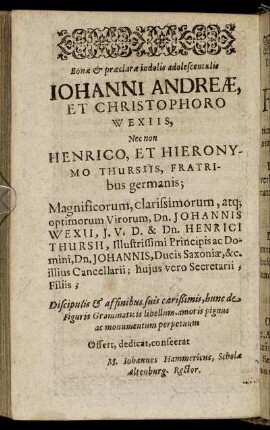 Bonæ & præclaræ indolis adolescentulis
IOHANNI ANDREÆ,
ET CHRISTOPHORO
WEXIIS,
Nec non
HENRICO, ET HIERONY-
MO THURSIIS, FRATRI-
bus germanis;
Magnificorum, clarissimorum, atq;
optimorum Virorum, Dn. JOHANNIS
WEXII, J. V. D. & Dn. HENRICI
THURSII, Illustrissimi Principis ac Do-
mini, Dn, JOHANNIS, Ducis Saxoniæ, &c.
illius Cancellarii; hujus vero Secretarii,
Filiis;
Discipulis & affinibus suis carissimis, hunc de
Figuris Grammaticis libellum, amoris pignus
ac monumentum perpetuum
Offert, dedicat, consecrat
M. Iohannes Hammericus, Scholæ
Altenburg. Rector.